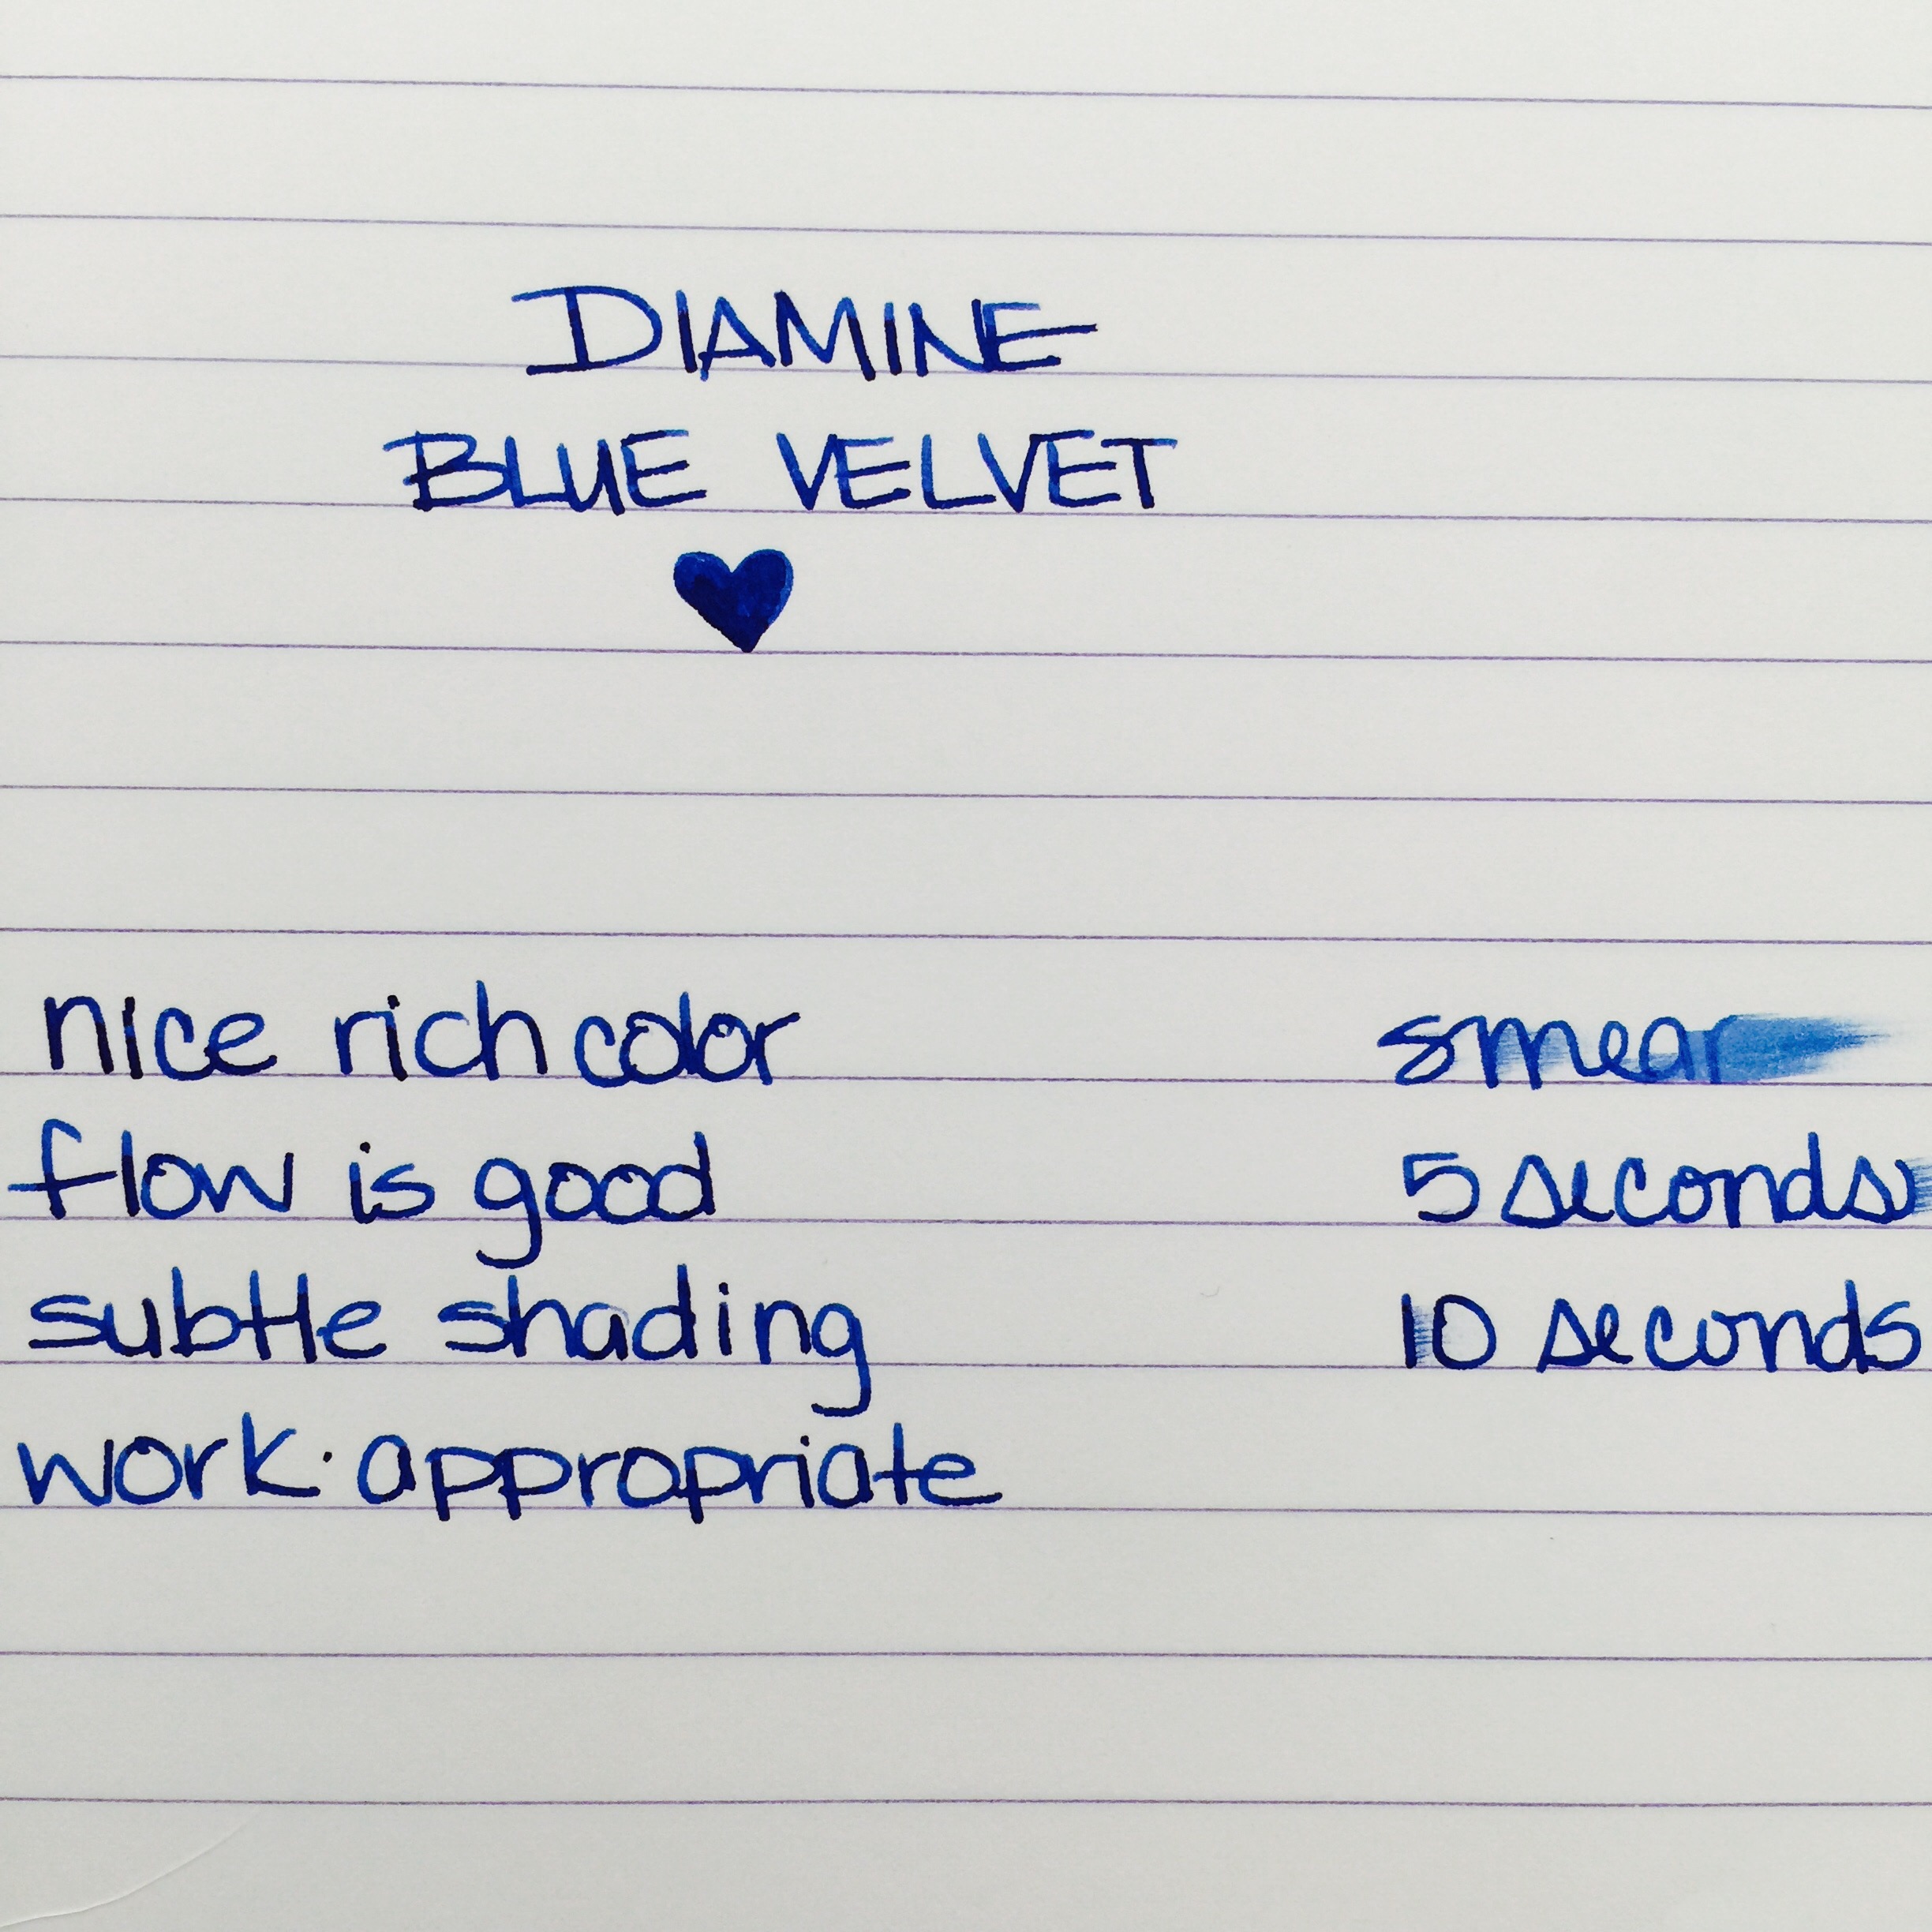 DIAMINE
BLUE VELVET
nice rich color
smear
flow is good
5 seconds
subtle shading
10 seconds
work·appropriate